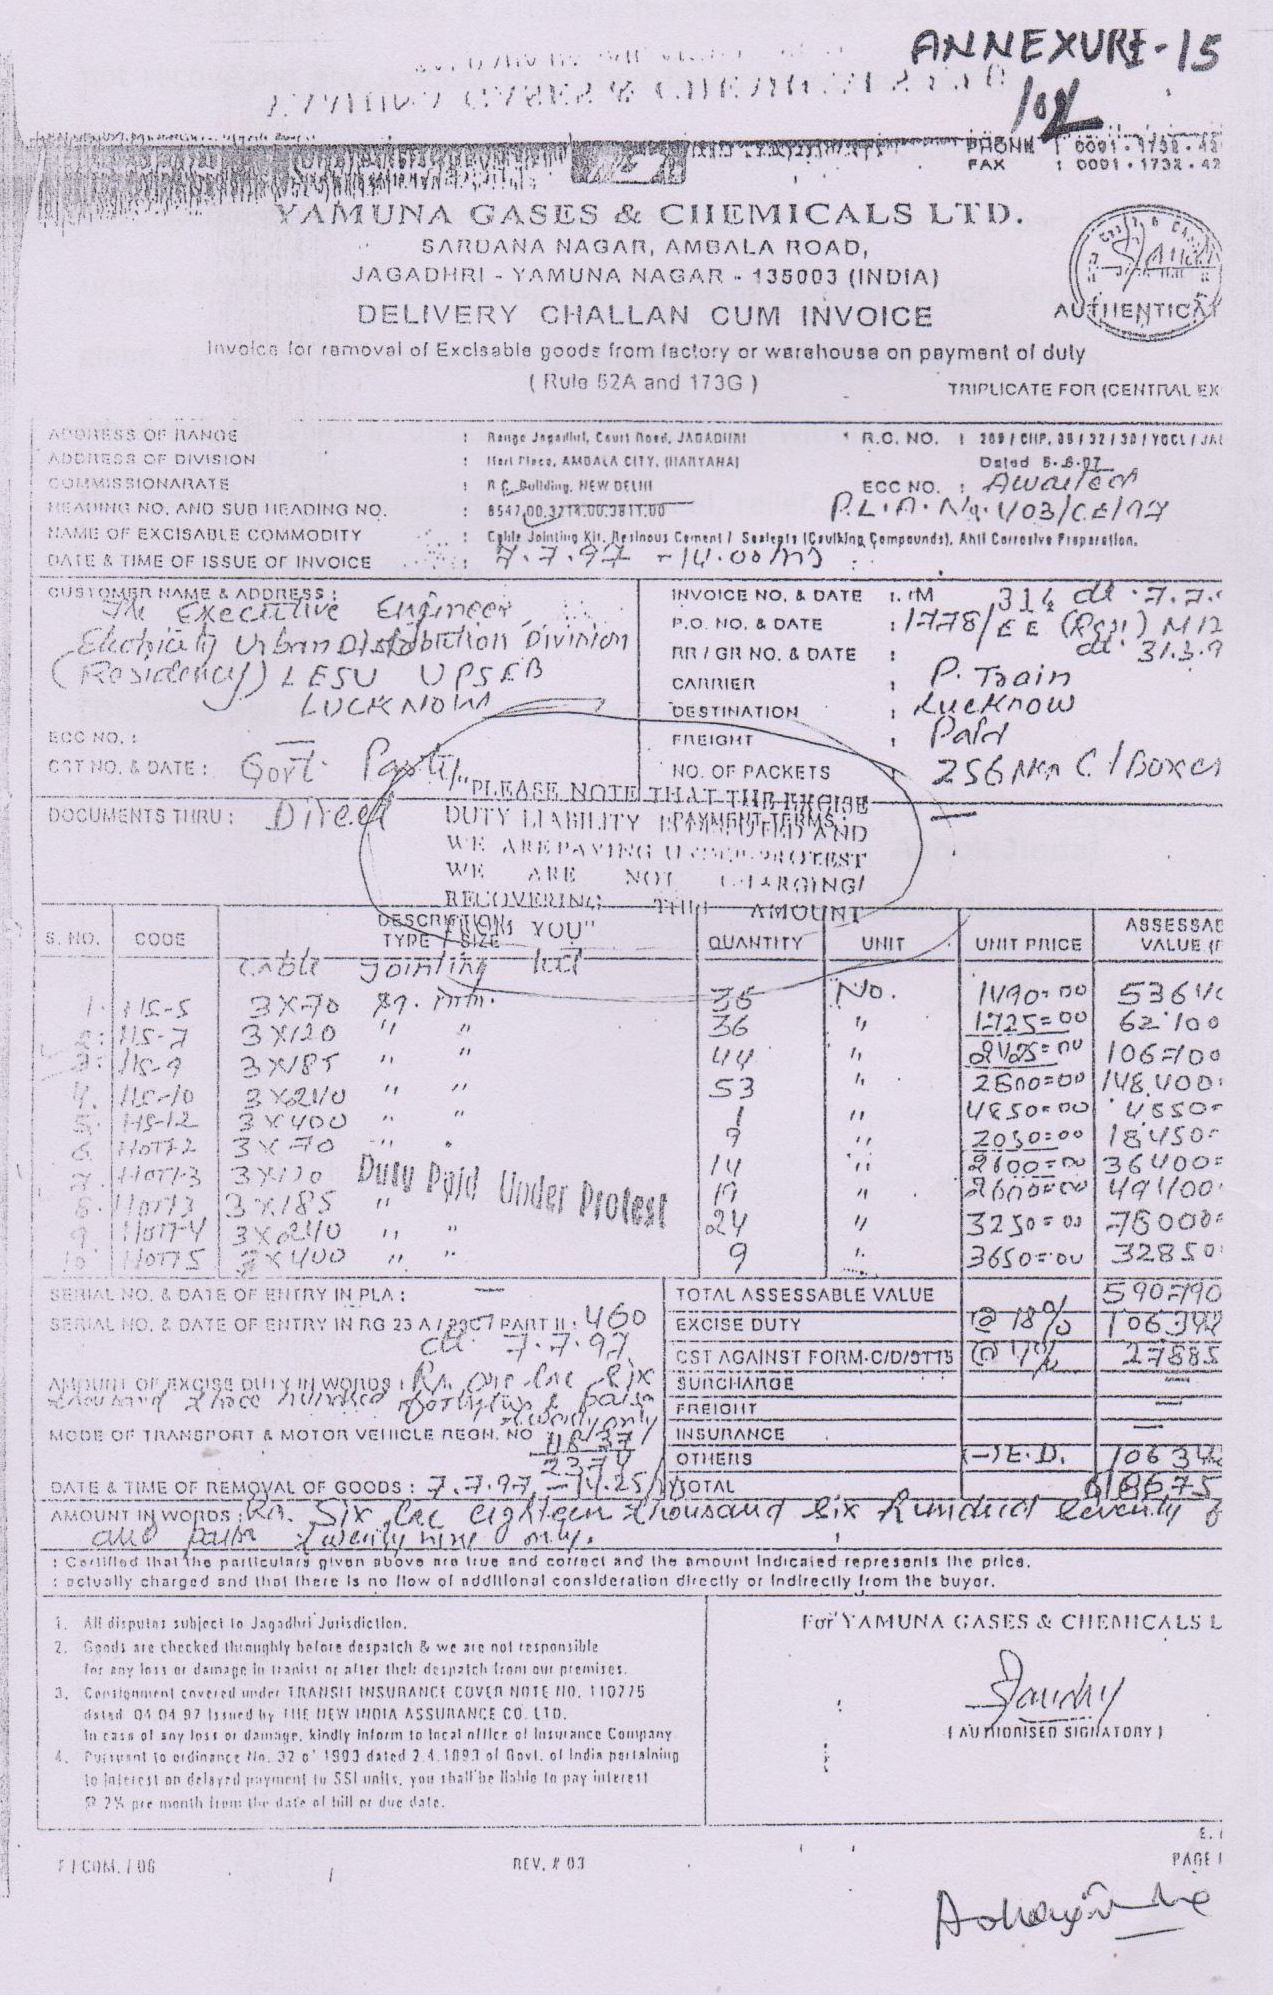 ANNEXURE-15
102
PHONE : 0091 - 1732 - 42
FAX : 0091 - 1732 - 42
YAMUNA GASES & CHEMICALS LTD.
SARDANA NAGAR, AMBALA ROAD,
JAGADHRI - YAMUNA NAGAR - 135003 (INDIA)
DELIVERY CHALLAN CUM INVOICE
AUTHENTICA
Invoice for removal of Excisable goods from factory or warehouse on payment of duty
( Rule 52A and 173G )
TRIPLICATE FOR (CENTRAL EX
ADDRESS OF RANGE : Range Jagadhri, Court Road, JAGADHRI
R.C. NO. : 209 / CHP. 38 / 32 / 30 / YGCL / JA
ADDRESS OF DIVISION : Hari Place, AMBALA CITY, (HARYANA)
Dated 5-6-97
COMMISSIONARATE : R.C. Building, NEW DELHI
ECC NO. : Awaited
HEADING NO. AND SUB HEADING NO. : 8547.00.3214.00.3811.00
P.L.A. No. 1/03/CE/97
NAME OF EXCISABLE COMMODITY : Cable Jointing Kit, Resinous Cement / Sealents (Caulking Compounds), Anti Corrosive Preparation.
DATE & TIME OF ISSUE OF INVOICE : 7.7.97 - 14.00 hrs
CUSTOMER NAME & ADDRESS :
The Executive Engineer
Electricity Urban Distribution Division
(Residency) LESU UPSEB
LUCKNOW
ECC NO. : —
CST NO. & DATE : Govt. Party
INVOICE NO. & DATE : M 314 dt. 7.7.
P.O. NO. & DATE : 1778/EE (Resi) M12
dt. 31.3.9
RR / GR NO. & DATE :
CARRIER : P. Train
DESTINATION : Lucknow
FREIGHT : Paid
NO. OF PACKETS : 256 Nos C/Boxes
DOCUMENTS THRU : Direct
PAYMENT TERMS : —
"PLEASE NOTE THAT THE EXCISE
DUTY LIABILITY DISPUTED AND
WE ARE PAYING UNDER PROTEST
WE ARE NOT CHARGING/
RECOVERING THIS AMOUNT
FROM YOU"
S. NO. CODE DESCRIPTION TYPE / SIZE QUANTITY UNIT UNIT PRICE ASSESSAB VALUE (R
Cable Jointing kit
1. HS-5 3X70 sq. mm. 36 No. 1490=00 53640
2. HS-7 3X120 " " 36 " 1725=00 62100
3. HS-9 3X185 " " 44 " 2425=00 106700
4. HS-10 3X240 " " 53 " 2800=00 148400
5. HS-12 3X400 " " 1 " 4850=00 4850=
6. HOTT-2 3X70 " " 9 " 2050=00 18450=
7. HOTT-3 3X120 14 " 2600=00 36400=
8. HOTT3 3X185 " 19 " 2600=00 49400
9 HOTT-4 3X240 " " 24 " 3250=00 78000=
10 HOTT5 3X400 " " 9 " 3650=00 32850
Duty Paid Under Protest
SERIAL NO. & DATE OF ENTRY IN PLA : —
TOTAL ASSESSABLE VALUE 590790
SERIAL NO. & DATE OF ENTRY IN RG 23 A / 23C / PART II : 460
dt. 7.7.97
EXCISE DUTY @ 18% 106342
CST AGAINST FORM-C/D/STT5 @ 4% 27885
AMOUNT OF EXCISE DUTY IN WORDS : Rs. one lac six
thousand three hundred forty two & paise
twenty only
SURCHARGE —
FREIGHT —
MODE OF TRANSPORT & MOTOR VEHICLE REGN. NO HR 37
2374
INSURANCE —
OTHERS (-) E.D. 10634
DATE & TIME OF REMOVAL OF GOODS : 7.7.97 - 14.25 hrs
TOTAL 618675
AMOUNT IN WORDS : Rs. Six lac eighteen thousand six hundred seventy f
and paise twenty nine only.
: Certified that the particulars given above are true and correct and the amount indicated represents the price.
: actually charged and that there is no flow of additional consideration directly or indirectly from the buyer.
1. All disputes subject to Jagadhri Jurisdiction.
2. Goods are checked throughly before despatch & we are not responsible
for any loss or damage in tranist or after their despatch from our premises.
3. Consignment covered under TRANSIT INSURANCE COVER NOTE NO. 110775
dated 04.04.97 Issued by THE NEW INDIA ASSURANCE CO. LTD.
In case of any loss or damage, kindly inform to local office of Insurance Company
4. Pursuant to ordinance No. 32 of 1993 dated 2.4.1993 of Govt. of India pertaining
to interest on delayed payment to SSI units, you shall be liable to pay interest
@ 2% pre month from the date of bill or due date.
For YAMUNA GASES & CHEMICALS L
( AUTHORISED SIGNATORY )
E.
PAGE
F / COM. / 06
REV. # 03